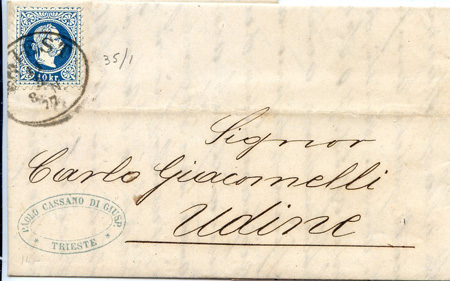 10 kr.
77
35/1
Signor
Carlo Giacomelli
Udine
PAOLO CASSANO DI GIUSP.
* TRIESTE *